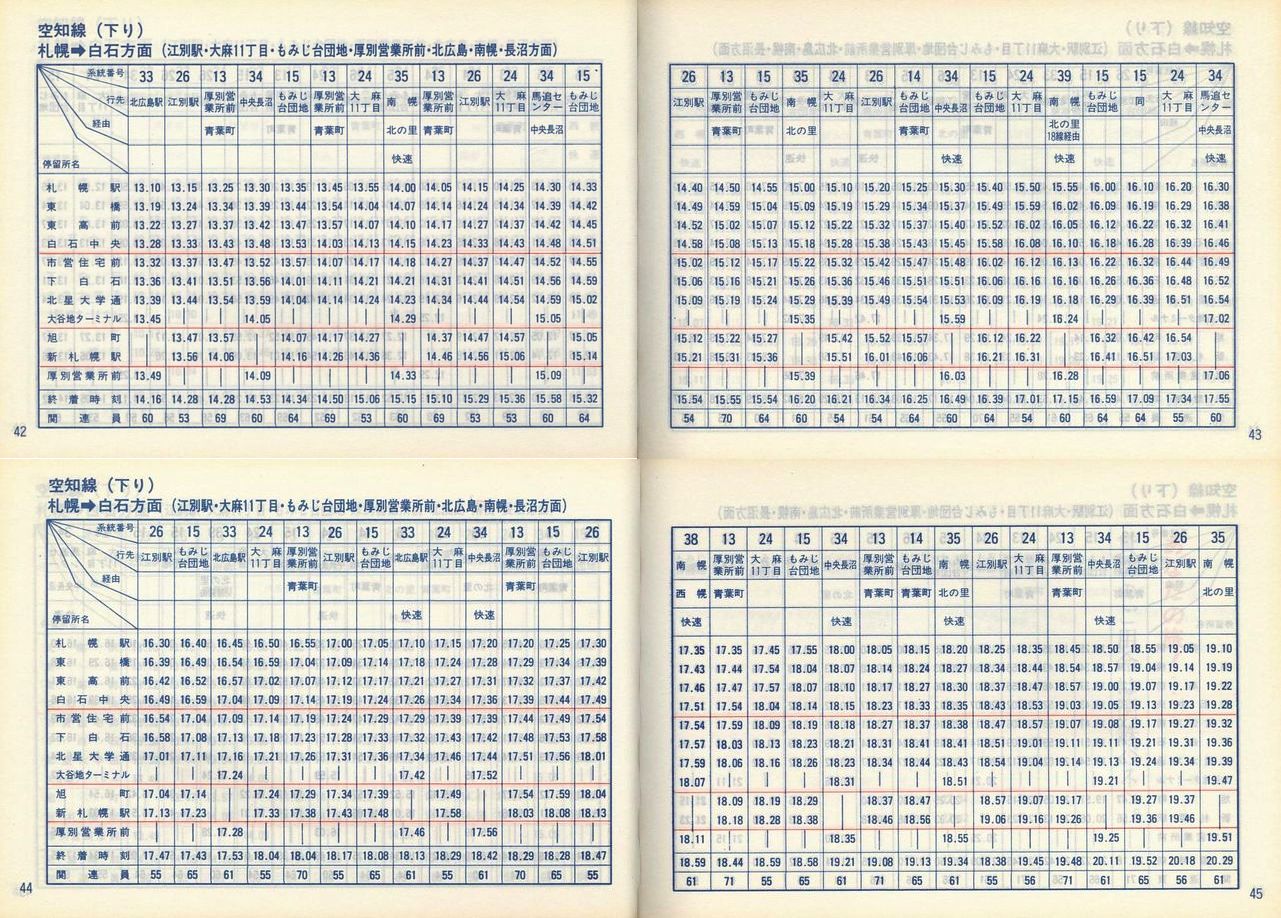 空知線（下り）
札幌➡白石方面（江別駅・大麻11丁目・もみじ台団地・厚別営業所前・北広島・南幌・長沼方面）
系統番号 33 26 13 34 15 13 24 35 13 26 24 34 15
行先 北広島駅 江別駅 厚別営業所前 中央長沼 もみじ台団地 厚別営業所前 大麻11丁目 南幌 厚別営業所前 江別駅 大麻11丁目 馬追センター もみじ台団地
経由 青葉町 青葉町 北の里 青葉町 中央長沼
停留所名 快速
札幌駅 13.10 13.15 13.25 13.30 13.35 13.45 13.55 14.00 14.05 14.15 14.25 14.30 14.33
東橋 13.19 13.24 13.34 13.39 13.44 13.54 14.04 14.07 14.14 14.24 14.34 14.39 14.42
東高前 13.22 13.27 13.37 13.42 13.47 13.57 14.07 14.10 14.17 14.27 14.37 14.42 14.45
白石中央 13.28 13.33 13.43 13.48 13.53 14.03 14.13 14.15 14.23 14.33 14.43 14.48 14.51
市営住宅前 13.32 13.37 13.47 13.52 13.57 14.07 14.17 14.18 14.27 14.37 14.47 14.52 14.55
下白石 13.36 13.41 13.51 13.56 14.01 14.11 14.21 14.21 14.31 14.41 14.51 14.56 14.59
北星大学通 13.39 13.44 13.54 13.59 14.04 14.14 14.24 14.23 14.34 14.44 14.54 14.59 15.02
大谷地ターミナル 13.45 | | 14.05 | | | 14.29 | | | 15.05 |
旭町 | 13.47 13.57 | 14.07 14.17 14.27 | 14.37 14.47 14.57 | 15.05
新札幌駅 | 13.56 14.06 | 14.16 14.26 14.36 | 14.46 14.56 15.06 | 15.14
厚別営業所前 13.49 | | 14.09 | | | 14.33 | | | 15.09 |
終着時刻 14.16 14.28 14.28 14.53 14.34 14.50 15.06 15.15 15.10 15.29 15.36 15.58 15.32
関連員 60 53 69 60 64 69 53 60 69 53 53 60 64
42
26 13 15 35 24 26 14 34 15 24 39 15 15 24 34
江別駅 厚別営業所前 もみじ台団地 南幌 大麻11丁目 江別駅 もみじ台団地 中央長沼 もみじ台団地 大麻11丁目 南幌 もみじ台団地 同 大麻11丁目 馬追センター
青葉町 北の里 青葉町 北の里18線経由 中央長沼
快速 快速 快速
14.40 14.50 14.55 15.00 15.10 15.20 15.25 15.30 15.40 15.50 15.55 16.00 16.10 16.20 16.30
14.49 14.59 15.04 15.09 15.19 15.29 15.34 15.37 15.49 15.59 16.02 16.09 16.19 16.29 16.38
14.52 15.02 15.07 15.12 15.22 15.32 15.37 15.40 15.52 16.02 16.05 16.12 16.22 16.32 16.41
14.58 15.08 15.13 15.18 15.28 15.38 15.43 15.45 15.58 16.08 16.10 16.18 16.28 16.39 16.46
15.02 15.12 15.17 15.22 15.32 15.42 15.47 15.48 16.02 16.12 16.13 16.22 16.32 16.44 16.49
15.06 15.16 15.21 15.26 15.36 15.46 15.51 15.51 16.06 16.16 16.16 16.26 16.36 16.48 16.52
15.09 15.19 15.24 15.29 15.39 15.49 15.54 15.53 16.09 16.19 16.18 16.29 16.39 16.51 16.54
| | | 15.35 | | | 15.59 | | 16.24 | | | 17.02
15.12 15.22 15.27 | 15.42 15.52 15.57 | 16.12 16.22 | 16.32 16.42 16.54 |
15.21 15.31 15.36 | 15.51 16.01 16.06 | 16.21 16.31 | 16.41 16.51 17.03 |
| | | 15.39 | | | 16.03 | | 16.28 | | | 17.06
15.54 15.55 15.54 16.20 16.21 16.34 16.25 16.49 16.39 17.01 17.15 16.59 17.09 17.34 17.55
54 70 64 60 54 54 64 60 64 54 60 64 64 55 60
43
空知線（下り）
札幌➡白石方面（江別駅・大麻11丁目・もみじ台団地・厚別営業所前・北広島・南幌・長沼方面）
系統番号 26 15 33 24 13 26 15 33 24 34 13 15 26
行先 江別駅 もみじ台団地 北広島駅 大麻11丁目 厚別営業所前 江別駅 もみじ台団地 北広島駅 大麻11丁目 中央長沼 厚別営業所前 もみじ台団地 江別駅
経由 青葉町 青葉町
停留所名 快速 快速
札幌駅 16.30 16.40 16.45 16.50 16.55 17.00 17.05 17.10 17.15 17.20 17.20 17.25 17.30
東橋 16.39 16.49 16.54 16.59 17.04 17.09 17.14 17.18 17.24 17.28 17.29 17.34 17.39
東高前 16.42 16.52 16.57 17.02 17.07 17.12 17.17 17.21 17.27 17.31 17.32 17.37 17.42
白石中央 16.49 16.59 17.04 17.09 17.14 17.19 17.24 17.26 17.34 17.36 17.39 17.44 17.49
市営住宅前 16.54 17.04 17.09 17.14 17.19 17.24 17.29 17.29 17.39 17.39 17.44 17.49 17.54
下白石 16.58 17.08 17.13 17.18 17.23 17.28 17.33 17.32 17.43 17.42 17.48 17.53 17.58
北星大学通 17.01 17.11 17.16 17.21 17.26 17.31 17.36 17.34 17.46 17.44 17.51 17.56 18.01
大谷地ターミナル | | 17.24 | | | | 17.42 | 17.52 | | |
旭町 17.04 17.14 | 17.24 17.29 17.34 17.39 | 17.49 | 17.54 17.59 18.04
新札幌駅 17.13 17.23 | 17.33 17.38 17.43 17.48 | 17.58 | 18.03 18.08 18.13
厚別営業所前 | | 17.28 | | | | 17.46 | 17.56 | | |
終着時刻 17.47 17.43 17.53 18.04 18.04 18.17 18.08 18.13 18.29 18.42 18.29 18.28 18.47
関連員 55 65 61 55 70 55 65 61 55 61 70 65 55
44
38 13 24 15 34 13 14 35 26 24 13 34 15 26 35
南幌 厚別営業所前 大麻11丁目 もみじ台団地 中央長沼 厚別営業所前 もみじ台団地 南幌 江別駅 大麻11丁目 厚別営業所前 中央長沼 もみじ台団地 江別駅 南幌
西幌 青葉町 青葉町 青葉町 北の里 青葉町 北の里
快速 快速 快速 快速
17.35 17.35 17.45 17.55 18.00 18.05 18.15 18.20 18.25 18.35 18.45 18.50 18.55 19.05 19.10
17.43 17.44 17.54 18.04 18.07 18.14 18.24 18.27 18.34 18.44 18.54 18.57 19.04 19.14 19.19
17.46 17.47 17.57 18.07 18.10 18.17 18.27 18.30 18.37 18.47 18.57 19.00 19.07 19.17 19.22
17.51 17.54 18.04 18.14 18.15 18.23 18.33 18.35 18.43 18.53 19.03 19.05 19.13 19.23 19.28
17.54 17.59 18.09 18.19 18.18 18.27 18.37 18.38 18.47 18.57 19.07 19.08 19.17 19.27 19.32
17.57 18.03 18.13 18.23 18.21 18.31 18.41 18.41 18.51 19.01 19.11 19.11 19.21 19.31 19.36
17.59 18.06 18.16 18.26 18.23 18.34 18.44 18.43 18.54 19.04 19.14 19.13 19.24 19.34 19.39
18.07 | | | 18.31 | | 18.51 | | | 19.21 | | 19.47
18.09 18.19 18.29 | 18.37 18.47 | 18.57 19.07 19.17 | 19.27 19.37
18.18 18.28 18.38 | 18.46 18.56 | 19.06 19.16 19.26 | 19.36 19.46
18.11 | | | 18.35 | | 18.55 | | | 19.25 | | 19.51
18.59 18.44 18.59 18.58 19.21 19.08 19.13 19.34 18.38 19.45 19.48 20.11 19.52 20.18 20.29
61 71 55 65 61 71 65 61 55 56 71 61 65 56 61
45